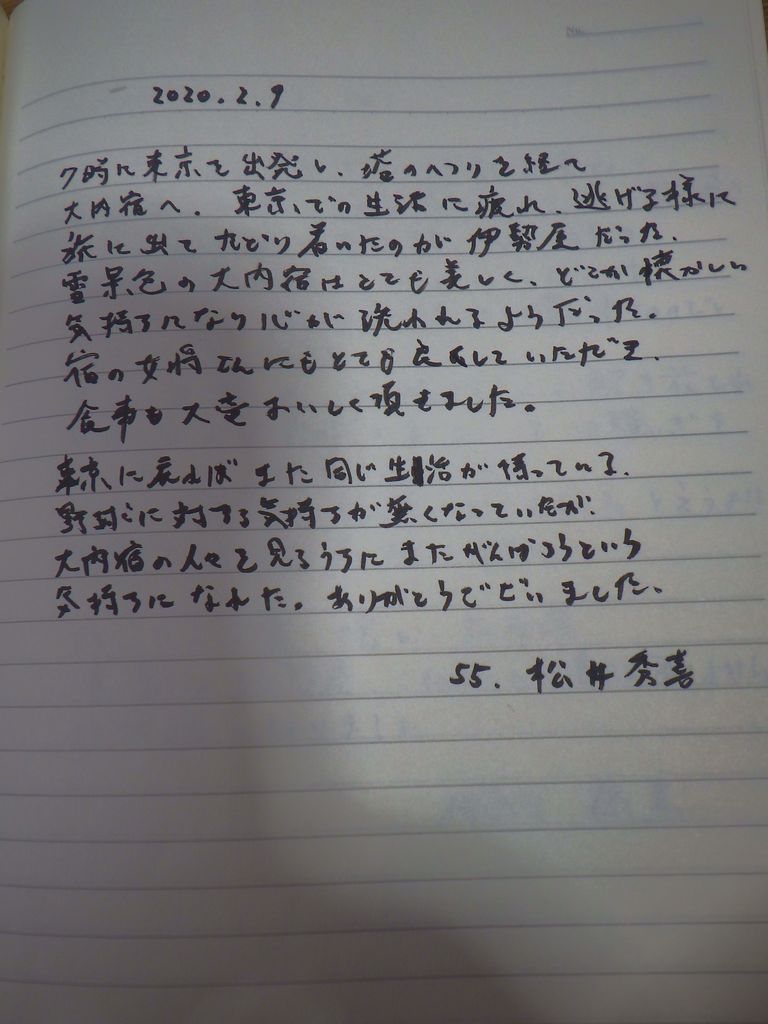 No.
2020.2.9
7時に東京を出発し、塔のへつりを経て
大内宿へ。東京での生活に疲れ、逃げる様に
旅に出てたどり着いたのが伊勢屋だった。
雪景色の大内宿はとても美しく、どこか懐かしい
気持ちになり心が洗われるようだった。
宿の女将さんにもとても良くしていただき、
食事も大変おいしく頂きました。
東京に戻ればまた同じ生活が待っている。
野球に対する気持ちが無くなっていたが、
大内宿の人々を見るうちにまたがんばろうという
気持ちになれた。ありがとうございました。
55. 松井秀喜